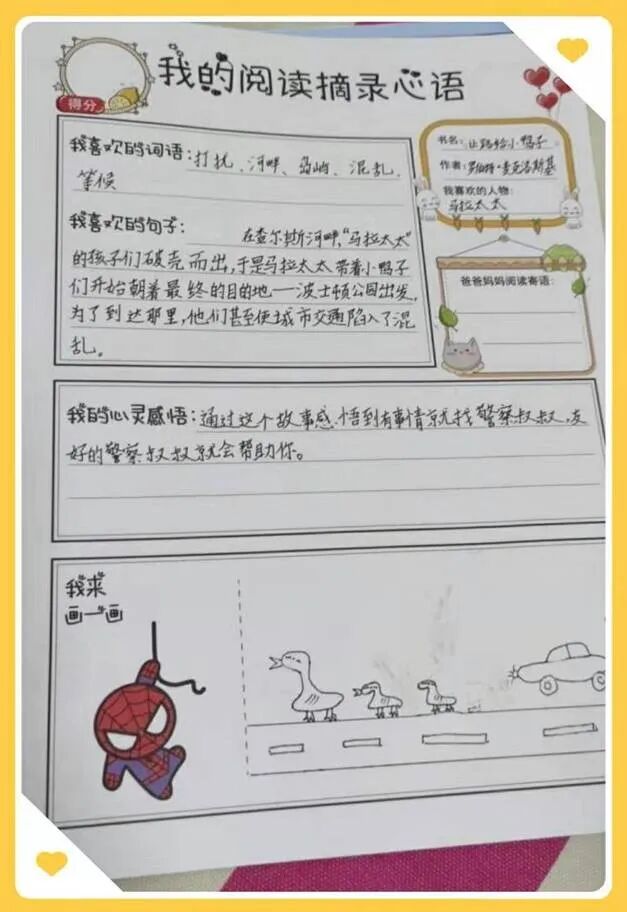 我的阅读摘录心语
得分
我喜欢的词语:打扰、河畔、岛屿、混乱、
等候
书名:让路给小鸭子
作者:罗伯特·麦克洛斯基
我喜欢的人物:
马拉太太
我喜欢的句子:在查尔斯河畔,“马拉太太”
的孩子们破壳而出,于是马拉太太带着小鸭子
们开始朝着最终的目的地——波士顿公园出发,
为了到达那里,他们甚至使城市交通陷入了混
乱。
爸爸妈妈阅读寄语:
我的心灵感悟:通过这个故事感悟到有事情就找警察叔叔,友
好的警察叔叔就会帮助你。
我来
画一画